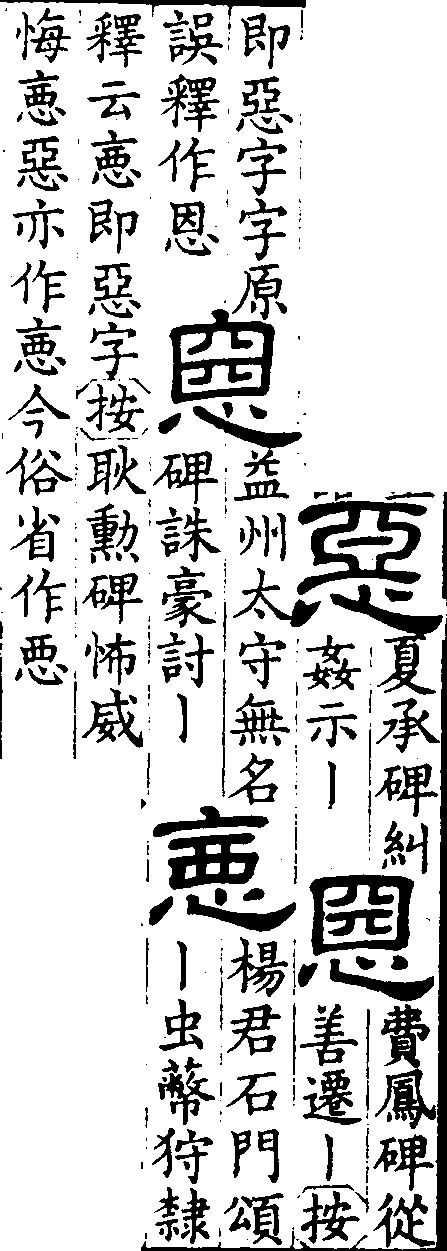 惡
夏承碑糾
姦示丨
費鳳碑從
善遷丨按
即惡字字原
誤釋作恩
益州太守無名
碑誅豪討丨
楊君石門頌
丨虫狩隸
釋云即惡字按耿勳碑怖威
悔惡亦作今俗省作悪